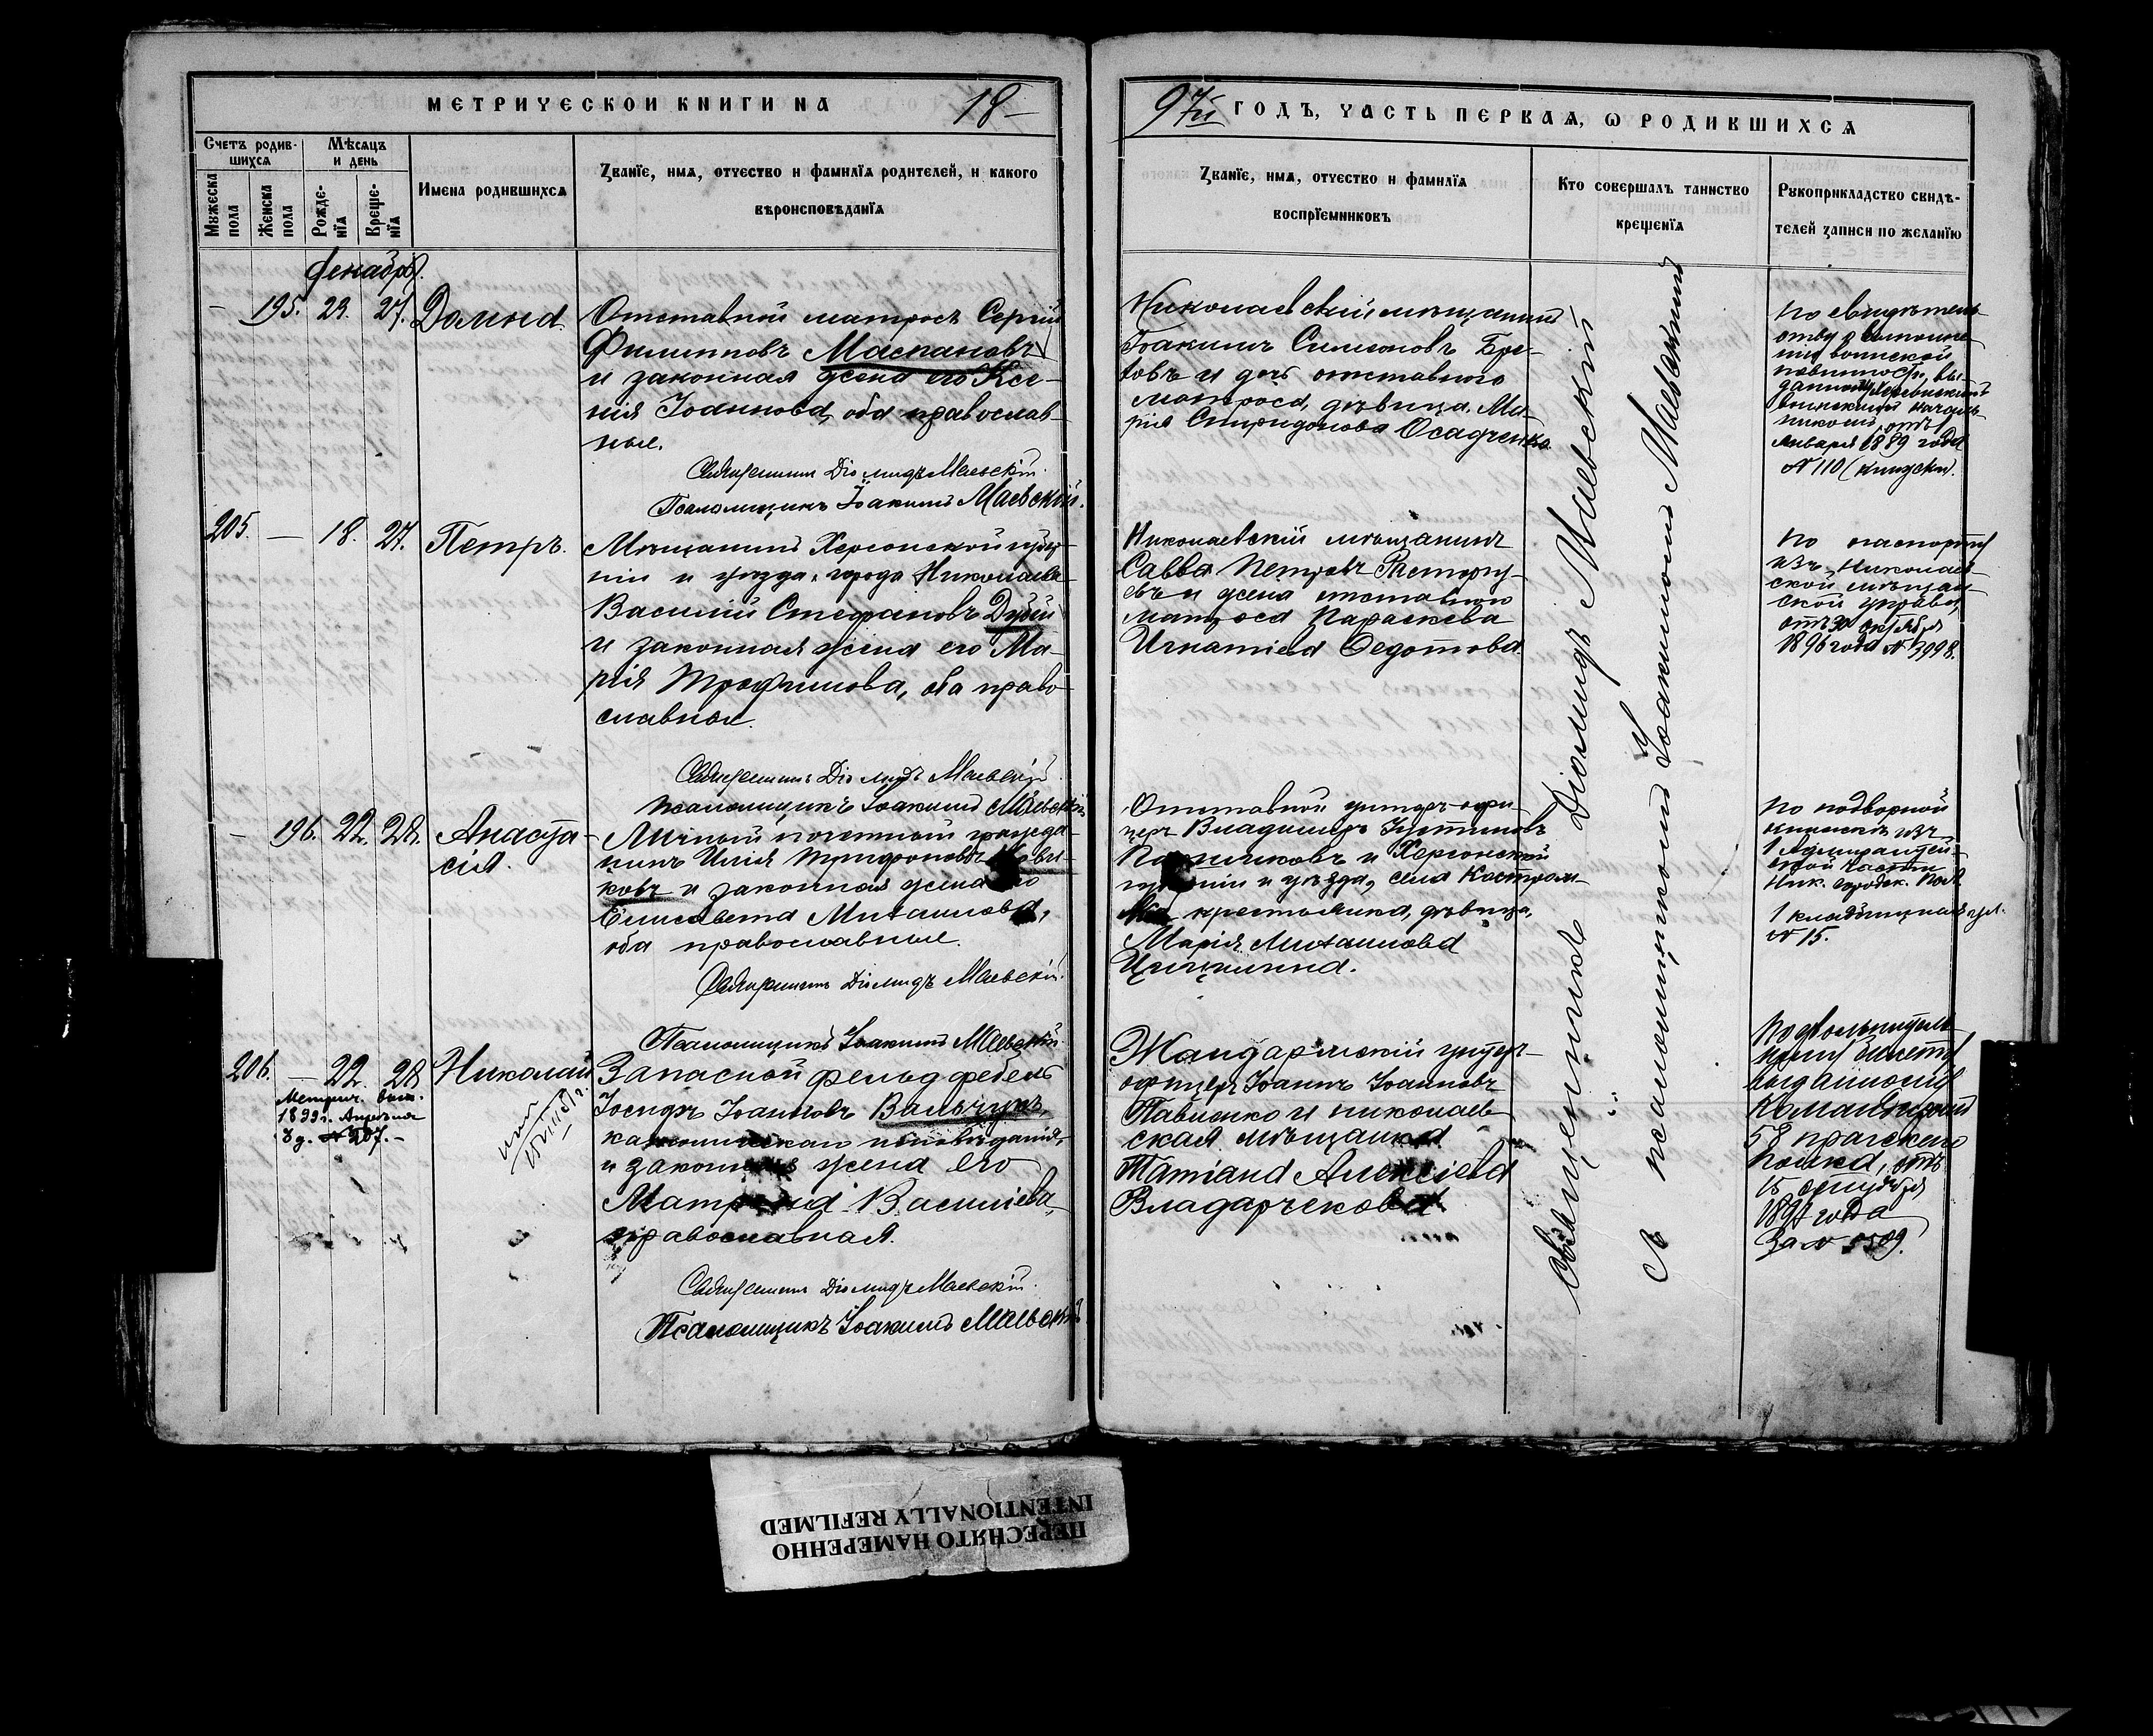 МЕТРИЧЕСКОЙ КНИГИ НА 18
97й ГОДЪ, ЧАСТЬ ПЕРВАЯ, Ѡ РОДИВШИХСЯ
Счетъ родив-
шихся
Мѣсяцъ
и день
Мужеска
пола
Женска
пола
Рожде-
нїя
Креще-
нїя
Имена родившихся
Званїе, имя, отчество и фамилїя родителей, и какого
вѣроисповѣданїя
Званїе, имя, отчество и фамилїя
воспрїемниковъ
Кто совершалъ таинство
крещенїя
Рукоприкладство свидѣ-
телей записи по желанїю
Декабрь.
— 195. 23. 27. Домна
Отставной матросъ Сергій
Филипповъ Маспановъ
и законная жена его Ксе-
нія Іоаннова, оба православ-
ные.
Священникъ Діомидъ Маевскій.
Псаломщикъ Іоакимъ Маевскій.
Николаевскій мѣщанинъ
Іоакимъ Симеоновъ Бре-
ловъ и дочь отставного
матроса, дѣвица, Ма-
рія Спиридонова Осадченко
По свидѣтель-
ству о выполне-
ніи воинской
повинности, вы-
данному Херсонскимъ
воинскимъ началь-
никомъ, отъ 1
Января 1889 года
№ 110
205. — 18. 27. Петръ.
Мѣщанинъ Херсонской губер-
ніи и уѣзда, города Николаева
Василій Стефановъ Дубій
и законная жена его Ма-
рія Трофимова, оба право-
славные.
Священникъ Діомидъ Маевскій.
Псаломщикъ Іоакимъ Маевскій
Николаевскій мѣщанинъ
Савва Петровъ Расторгу-
евъ и жена отставного
матроса Параскева
Игнатіева Федотова
По паспорту
изъ Николаев-
ской мѣщан-
ской управы,
отъ 30 октября
1896 года № 3998.
— 196. 22. 28. Анаста-
сія.
Личный почетный гражда-
нинъ Илія Трифоновъ
ковъ и законная жена его
Елисавета Михаилова,
оба православные.
Священникъ Діомидъ Маевскій.
Псаломщикъ Іоакимъ Маевскій
Отставной унтеръ-офи-
церъ Владимиръ Іустиновъ
и Херсонской
губерніи и уѣзда, села Костром-
крестьянка, дѣвица,
Марія Михаилова
Цицилина.
По подворной
описи изъ
1 Адмиралтей-
ской части
Ник. городск. Пол.
1 кладбищная ул.
№ 15.
206. — 22. 28. Николай
Метрич. вып.
1899 г. Апрѣля
3 д. № 207.—
Запасной фельдфебель
Іосифъ Іоанновъ Вальчукъ,
католическаго исповѣданія,
и законная жена его
Матрона Василіева,
православная.
Священникъ Діомидъ Маевскій.
Псаломщикъ Іоакимъ Маевскій
Жандармскій унтеръ-
офицеръ Іоаннъ Іоанновъ
Павленко и николаев-
ская мѣщанка
Татіана Алексіева
Владарчекова
По увольнитель-
ному билету
выданному
Командиромъ
58 прагскаго
полка, отъ
15 сентября
1891 года
За № 5509.
Священникъ Діомидъ Маевскій
съ псаломщикомъ Іоакимомъ Маевскимъ
ПЕРЕСНЯТО НАМЕРЕННО
INTENTIONALLY REFILMED